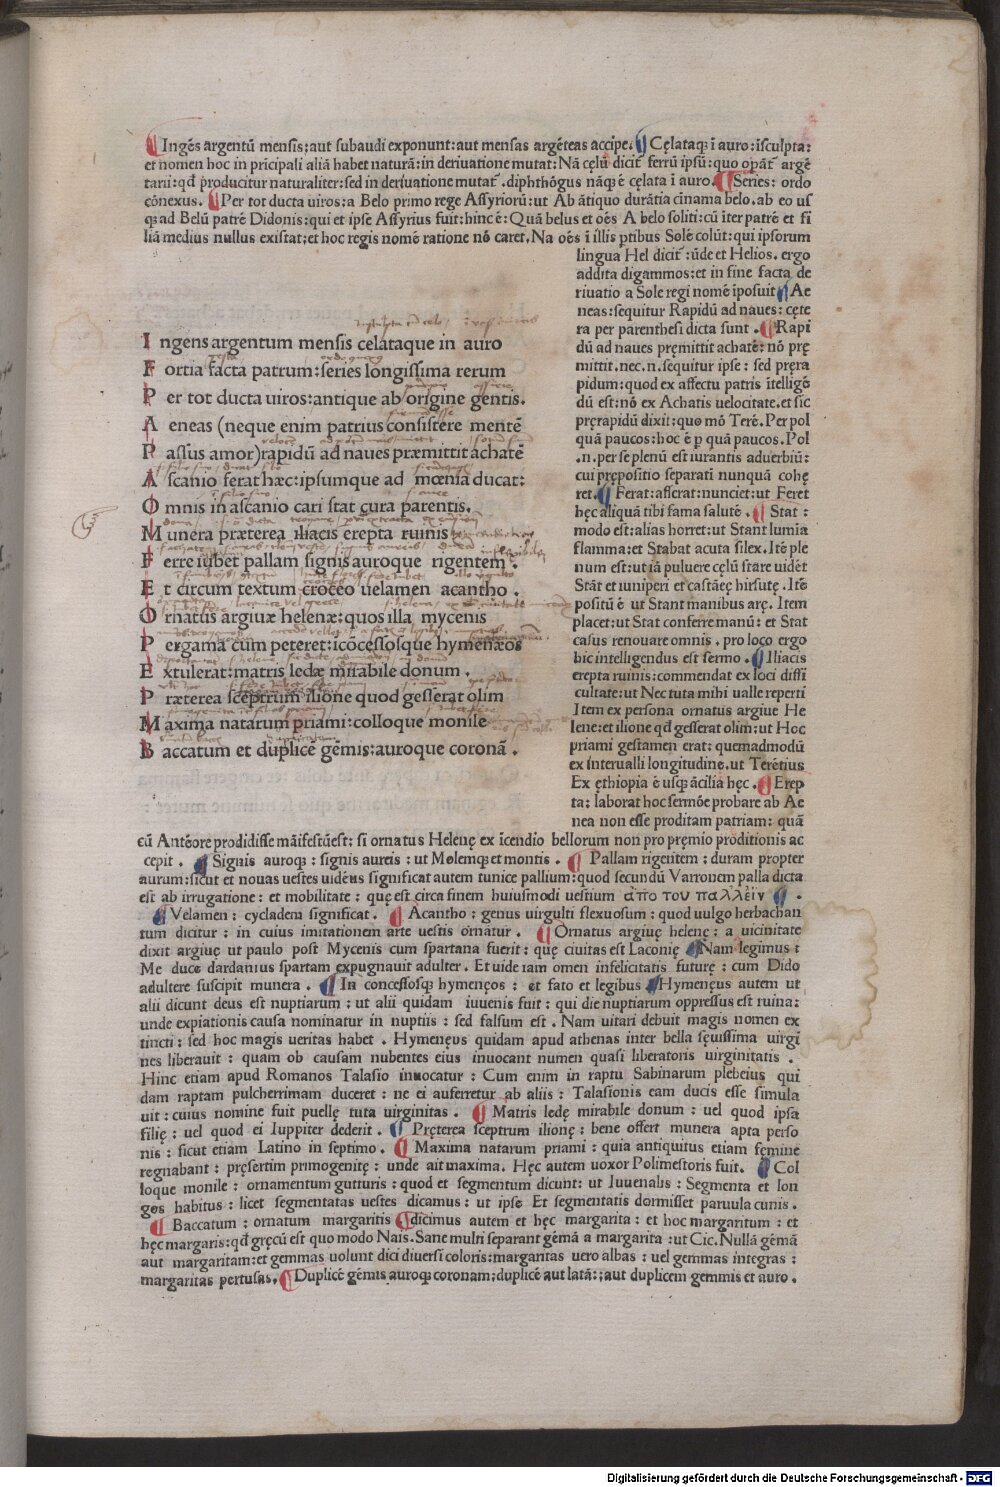 ¶ Ingẽs argentũ mensis;aut subaudi exponunt:aut mensas argẽteas accipe. ¶ Cęlataqꝫ ĩ auro:ĩsculpta:
et nomen hoc in prĩcipali aliã habet naturã:in deriuatione mutat:Nã cęlũ dicit᷑ ferrũ ipsũ:quo opãt᷑ argẽ
tarii:qđ producitur naturaliter:sed in deriuatione mutat᷑ .diphthõgus nãqꝫ ẽ cęlata ĩ auro. ¶ Series: ordo
cõnexus. ¶ Per tot ducta uiros:a Belo primo rege Assyriorũ:ut Ab ãtiquo durãtia cĩnama belo.ab eo us
qꝫ ad Belũ patrẽ Didonis:qui et ipse Assyrius fuit:hinc ẽ: Quã belus et oẽs A belo soliti:cũ ĩter patrẽ et fi
liã medius nullus existat;et hoc regis nomẽ ratione nõ caret. Na oẽs ĩ illis ꝑtibus Solẽ colũt:qui ipsorum
lingua Hel dicit᷑ :ũde et Helios. ergo
addita digammos:et in fine facta de
riuatio a Sole regi nomẽ ĩposuit ¶ Ae
neas:sequitur Rapidũ ad naues: cęte
ra per parenthesĩ dicta sunt . ¶ Rapi
dũ ad naues pręmittit achatẽ: nõ prę
mittit.nec.n.sequitur ipse: sed pręra
pidum:quod ex affectu patris ĩtelligẽ
dũ est:nõ ex Achatis uelocitate.et sic
pręrapidũ dixit:quo mõ Terẽ.Perpol
quã paucos:hoc ẽ ꝑ quã paucos. Pol
.n.per se plenũ est iurantis aduerbiũ:
cui prępositio separati nunquã cohę
ret. ¶ Ferat:afferat:nunciet:ut Feret
hęc aliquã tibi fama salutẽ . ¶ Stat :
modo est:alias horret:ut Stant lumĩa
flamma:et Stabat acuta silex. Itẽ ple
num est:ut iã puluere cęlũ stare uidẽt
Stãt et iuniperi et castãeę hirsutę. Itẽ
positũ ẽ ut Stant manibus arę. Item
placet:ut Stat conferre manũ: et Stat
casus renouare omnis . pro loco ergo
hic intelligendus est sermo . ¶ Iliacis
erepta ruinis:commendat ex loci diffi
cultate:ut Nec tuta mihi ualle reperti
Item ex persona ornatus argiue He
lene:et ilione qđ gesserat olim:ut Hoc
priami gestamen erat: quemadmodũ
ex interualli longitudine.ut Terẽtius
Ex ęthiopia ẽ usqꝫ ãcilia hęc . ¶ Erep
ta: laborat hoc sermõe probare ab Ae
nea non esse proditam patriam: quã
I ngens argentum mensis celataque in auro
F ortia facta patrum:series longissima rerum
P er tot ducta uiros:antique ab origine gentis.
A eneas (neque enim patrius consistere mentẽ
P assus amor)rapidũ ad naues præmittit achatẽ
A scanio ferat hæc:ipsumque ad mœnia ducat:
O mnis in ascanio cari stat cura parentis.
M unera præterea iliacis erepta ruinis
F erre iubet pallam signis auroque rigentem .
E t circum textum croceo uelamen acantho .
O rnatus argiuæ helenæ:quos illa mycenis
P ergama cum peteret:ĩcõcessosque hymenæos
E xtulerat:matris ledæ mirabile donum .
P ræterea sceptrum ilione quod gesserat olim
M axima natarum priami:colloque monile
B accatum et duplicẽ gẽmis:auroque coronã .
cũ Antẽore prodidisse mãifestũest: si ornatus Helenę ex ĩcendio bellorum non pro pręmio proditionis ac
cepit . ¶ Signis auroqꝫ : signis aureis : ut Molemqꝫ et montis . ¶ Pallam rigentem : duram propter
aurum:sicut et nouas uestes uidẽus significat autem tunice pallium:quod secundũ Varronem palla dicta
est ab irrugatione : et mobilitate : quę est circa finem huiusmodi uestium ἀπο του παλλειν ¶ .
¶ Velamen : cycladem significat . ¶ Acantho : genus uirgulti flexuosum : quod uulgo herbachan
tum dicitur : in cuius imitationem arte uestis ornatur . ¶ Ornatus argiuę helenę : a uicinitate
dixit argiuę ut paulo post Mycenis cum spartana fuerit : quę ciuitas est Laconię ¶ Nam legimus :
Me duce dardanius spartam expugnauit adulter . Et uide iam omen infelicitatis futurę : cum Dido
adultere suscipit munera . ¶ In concessosqꝫ hymenęos : et fato et legibus ¶ Hymenęus autem ut
alii dicunt deus est nuptiarum : ut alii quidam iuuenis fuit : qui die nuptiarum oppressus est ruina:
unde expiationis causa nominatur in nuptiis : sed falsum est . Nam uitari debuit magis nomen ex
tincti : sed hoc magis ueritas habet . Hymenęus quidam apud athenas inter bella sęuissima uirgi
nes liberauit : quam ob causam nubentes eius inuocant numen quasi liberatoris uirginitatis .
Hinc etiam apud Romanos Talasio inuocatur : Cum enim in raptu Sabinarum plebeius qui
dam raptam pulcherrimam duceret : ne ei auferretur ab aliis : Talasionis eam ducis esse simula
uit : cuius nomine fuit puellę tuta uirginitas . ¶ Matris ledę mirabile donum : uel quod ipsa
filię : uel quod ei Iuppiter dederit . ¶ Pręterea sceptrum ilionę : bene offert munera apta perso
nis : sicut etiam Latino in septimo . ¶ Maxima natarum priami : quia antiquitus etiam femine
regnabant : pręsertim primogenitę : unde ait maxima. Hęc autem uoxor Polimestoris fuit. ¶ Col
loque monile : ornamentum gutturis : quod et segmentum dicunt: ut Iuuenalis : Segmenta et lon
gos habitus : licet segmentatas uestes dicamus : ut ipse Et segmentatis dormisset paruula cunis .
¶ Baccatum : ornatum margaritis ¶ dicimus autem et hęc margarita : et hoc margaritum : et
hęc margaris:qđ gręcũ est quo modo Nais. Sane multi separant gẽmã a margarita :ut Cic. Nullã gẽmã
aut margaritam:et gemmas uolunt dici diuersi coloris:margaritas uero albas : uel gemmas integras :
margaritas pertusas. ¶ Duplicẽ gẽmis auroqꝫ coronam:duplicẽ aut latã:;aut duplicem gemmis et auro .
Digitalisierung gefördert durch die Deutsche Forschungsgemeinschaft - DFG